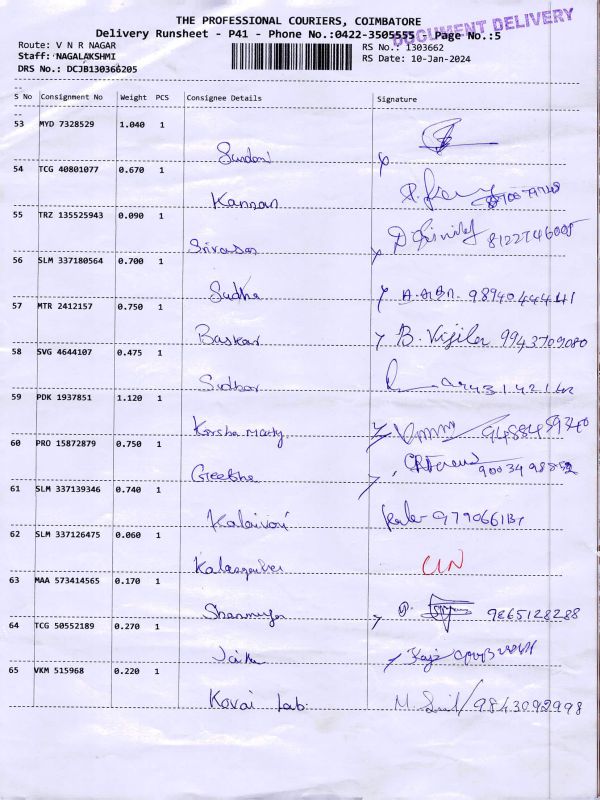 THE PROFESSIONAL COURIERS, COIMBATORE
Delivery Runsheet - P41 - Phone No.:0422-3505555 Page No.:5
DOCUMENT DELIVERY
Route: V N R NAGAR RS No.: 1303662
Staff: NAGALAKSHMI RS Date: 10-Jan-2024
DRS No.: DCJB130366205
S No Consignment No Weight PCS Consignee Details Signature
53 MYD 7328529 1.040 1
54 TCG 40801077 0.670 1
Kannan
55 TRZ 135525943 0.090 1
Srivasan 8122746005
56 SLM 337180564 0.700 1
Sudha 9894044441
57 MTR 2412157 0.750 1
Baskar B. Vijila 9943709080
58 SVG 4644107 0.475 1
Sridhar
59 PDK 1937851 1.120 1
9488459340
60 PRO 15872879 0.750 1
Geetha
61 SLM 337139346 0.740 1
Kalaivani
62 SLM 337126475 0.060 1
63 MAA 573414565 0.170 1
Shanmuga 9865128288
64 TCG 50552189 0.270 1
65 VKM 515968 0.220 1
Kovai Lab 9843092998